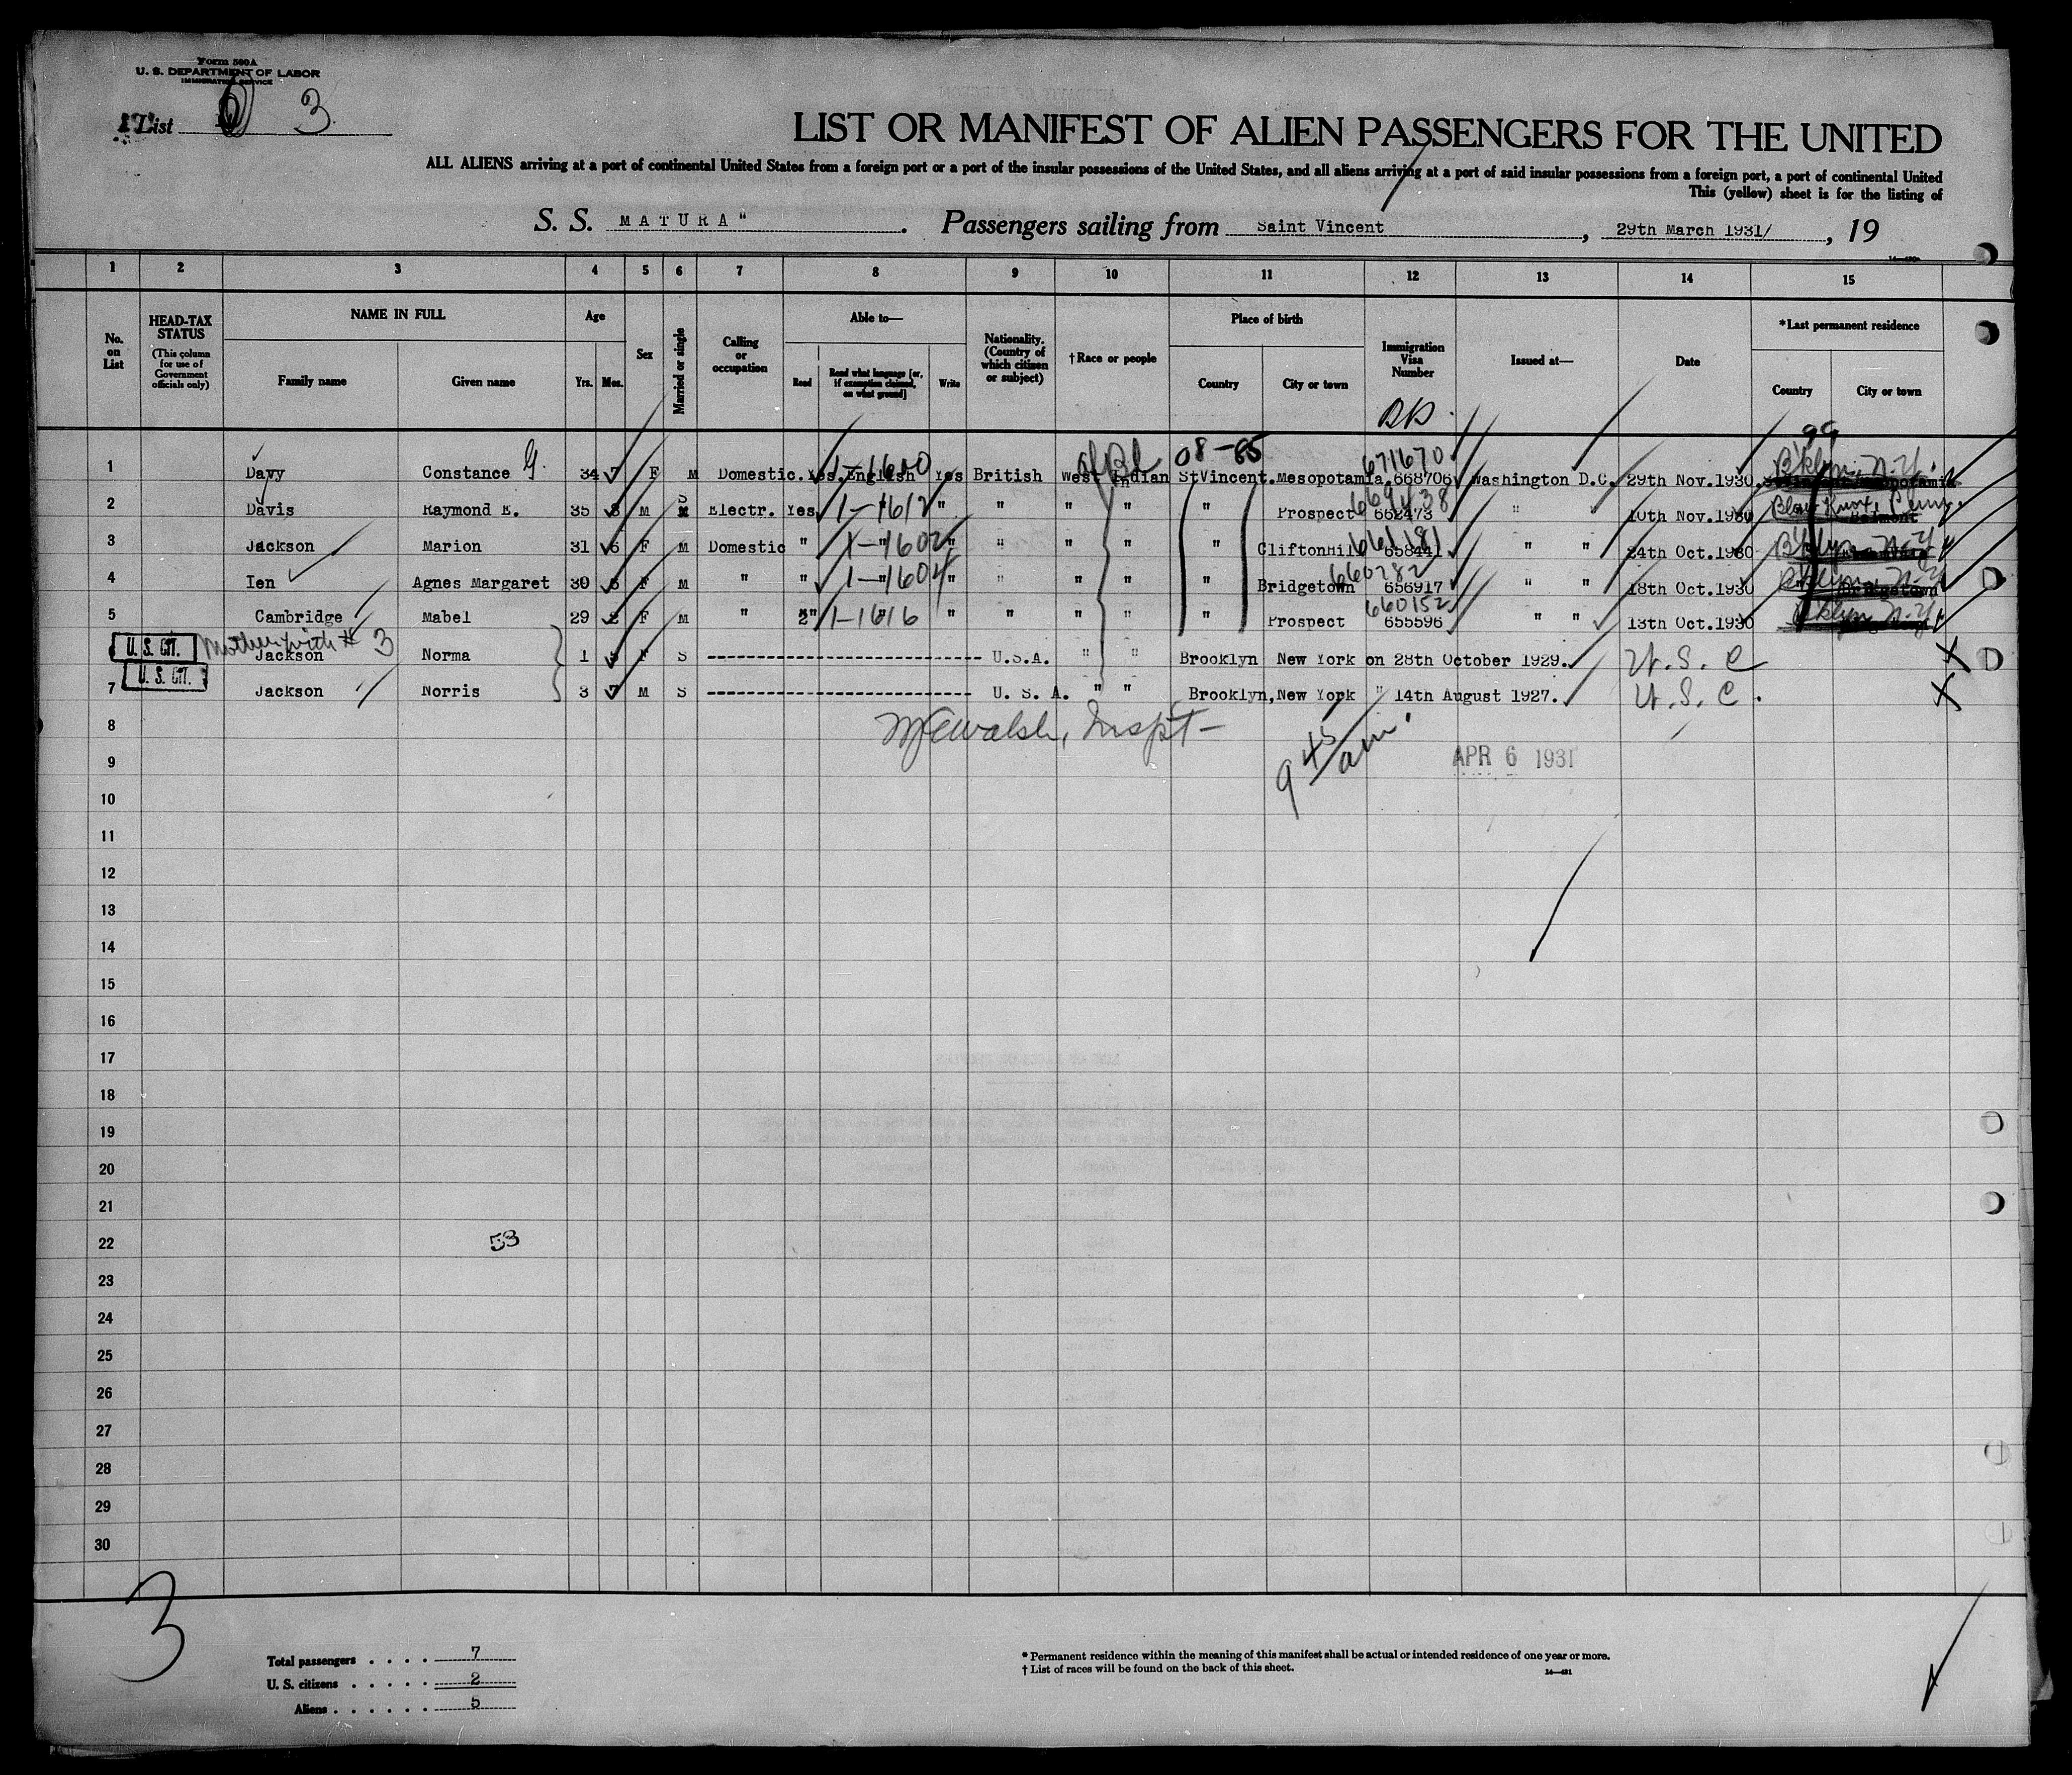 Form 500A
U. S. DEPARTMENT OF LABOR
IMMIGRATION SERVICE
List 3
LIST OR MANIFEST OF ALIEN PASSENGERS FOR THE UNITED
ALL ALIENS arriving at a port of continental United States from a foreign port or a port of the insular possessions of the United States, and all aliens arriving at a port of said insular possessions from a foreign port, a port of continental United
This (yellow) sheet is for the listing of
S. S. MATURA" . Passengers sailing from Saint Vincent , 29th March 1931/ , 19
1 2 3 4 5 6 7 8 9 10 11 12 13 14 15
No. on List
HEAD-TAX STATUS
(This column for use of Government officials only)
NAME IN FULL
Family name Given name
Age
Yrs. Mos.
Sex
Married or single
Calling or occupation
Able to—
Read Read what language [or, if exemption claimed, on what ground] Write
Nationality. (Country of which citizen or subject)
†Race or people
Place of birth
Country City or town
Immigration Visa Number
Issued at—
Date
*Last permanent residence
Country City or town
99
08-85
1-1600 671670 Bklyn. N.Y.
1 Davy Constance G. 34 7 F M Domestic. Yes. English Yes British West Indian StVincent. Mesopotamia. 668706 Washington D.C. 29th Nov.1930.
S 669438
2 Davis Raymond E. 35 8 M Electr. Yes 1-1612 " " " " " Prospect 662473 " 10th Nov.1930 Blaw Knox, Penn.
661181
3 Jackson Marion 31 6 F M Domestic " 1-1602 " " " " " CliftonHill 658441 " " 24th Oct.1930 Bklyn N-Y
660282
4 Ien Agnes Margaret 30 6 F M " " 1-1604 " " " " " Bridgetown 656917 " " 18th Oct.1930 Bklyn N-Y
660152
5 Cambridge Mabel 29 2 F M " " 1-1616 " " " " " Prospect 655596 " " 13th Oct.1930 Bklyn N-Y
U. S. CIT. Mother with # 3
Jackson Norma 1 5 F S U.S.A. " " Brooklyn New York on 28th October 1929. U.S.C
U. S. CIT.
7 Jackson Norris 3 7 M S U. S. A. " " Brooklyn, New York " 14th August 1927. U.S.C.
8 Walsh, Inspt-
9 9 45 am. APR 6 1931
10
11
12
13
14
15
16
17
18
19
20
21
22 53
23
24
25
26
27
28
29
30
3
Total passengers . . . . 7
U. S. citizens . . . . . 2
Aliens . . . . . . 5
* Permanent residence within the meaning of this manifest shall be actual or intended residence of one year or more.
† List of races will be found on the back of this sheet.
14—431